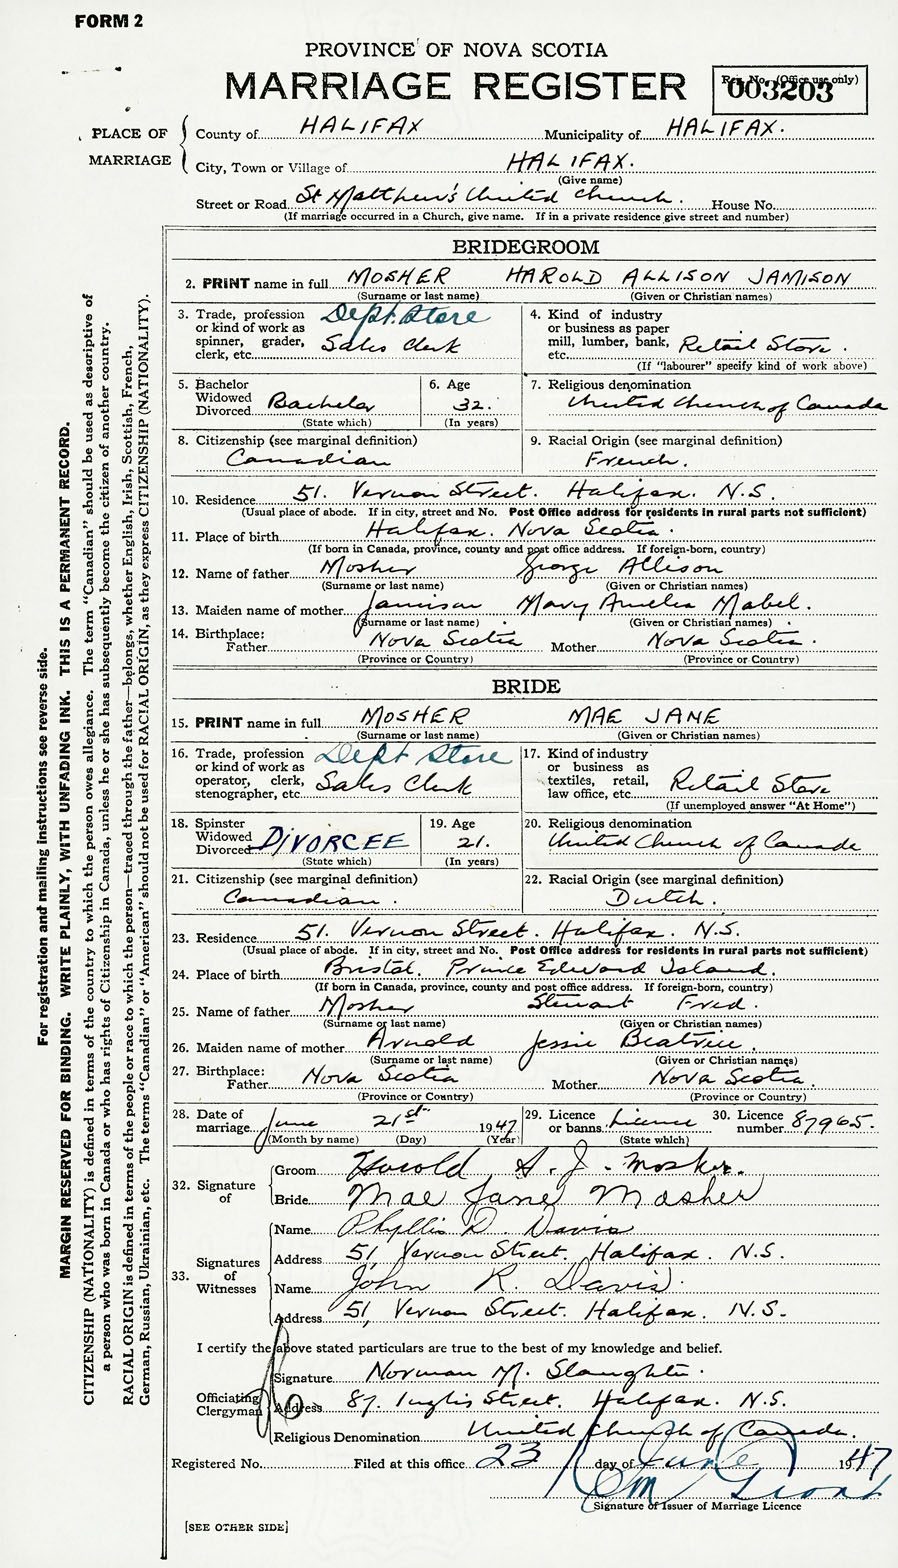 FORM 2
PROVINCE OF NOVA SCOTIA
MARRIAGE REGISTER
Reg. No. (Office use only)
003203
PLACE OF MARRIAGE
County of HALIFAX Municipality of HALIFAX.
City, Town or Village of HALIFAX.
(Give name)
Street or Road St Matthew's United Church. House No.
(If marriage occurred in a Church, give name. If in a private residence give street and number)
BRIDEGROOM
2. PRINT name in full MOSHER HAROLD ALLISON JAMISON
(Surname or last name) (Given or Christian names)
3. Trade, profession or kind of work as spinner, grader, clerk, etc. Dept. Store Sales Clerk
4. Kind of industry or business as paper mill, lumber, bank, etc. Retail Store.
(If "labourer" specify kind of work above)
5. Bachelor Widowed Divorced Bachelor
(State which)
6. Age 32.
(In years)
7. Religious denomination
United Church of Canada
8. Citizenship (see marginal definition)
Canadian
9. Racial Origin (see marginal definition)
French.
10. Residence 51. Vernon Street. Halifax. N.S.
(Usual place of abode. If in city, street and No. Post Office address for residents in rural parts not sufficient)
11. Place of birth Halifax. Nova Scotia.
(If born in Canada, province, county and post office address. If foreign-born, country)
12. Name of father Mosher George Allison
(Surname or last name) (Given or Christian names)
13. Maiden name of mother Jamison Mary Amelia Mabel.
(Surname or last name) (Given or Christian names)
14. Birthplace:
Father Nova Scotia Mother Nova Scotia.
(Province or Country) (Province or Country)
BRIDE
15. PRINT name in full MOSHER MAE JANE
(Surname or last name) (Given or Christian names)
16. Trade, profession or kind of work as operator, clerk, stenographer, etc. Dept Store Sales Clerk
17. Kind of industry or business as textiles, retail, law office, etc. Retail Store
(If unemployed answer "At Home")
18. Spinster Widowed Divorced DIVORCEE
(State which)
19. Age 21.
(In years)
20. Religious denomination
United Church of Canada
21. Citizenship (see marginal definition)
Canadian.
22. Racial Origin (see marginal definition)
Dutch.
23. Residence 51. Vernon Street. Halifax. N.S.
(Usual place of abode. If in city, street and No. Post Office address for residents in rural parts not sufficient)
24. Place of birth Bristol. Prince Edward Island.
(If born in Canada, province, county and post office address. If foreign-born, country)
25. Name of father Mosher Stewart Fred.
(Surname or last name) (Given or Christian names)
26. Maiden name of mother Arnold Jessie Beatrice.
(Surname or last name) (Given or Christian names)
27. Birthplace:
Father Nova Scotia Mother Nova Scotia.
(Province or Country) (Province or Country)
28. Date of marriage June 21st 1947
(Month by name) (Day) (Year)
29. Licence or banns Licence
(State which)
30. Licence number 87965.
32. Signature of
Groom Harold A. J. Mosher.
Bride Mae Jane Mosher
33. Signatures of Witnesses
Name Phyllis D. Davis
Address 51, Vernon Street. Halifax. N.S.
Name John R. Davis.
Address 51, Vernon Street. Halifax. N.S.
I certify the above stated particulars are true to the best of my knowledge and belief.
Officiating Clergyman
Signature Norman M. Slaughter.
Address 87. Inglis Street. Halifax. N.S.
Religious Denomination United Church of Canada.
Registered No. Filed at this office 23 day of June 1947
Grant
Signature of Issuer of Marriage Licence
[SEE OTHER SIDE]
For registration and mailing instructions see reverse side.
MARGIN RESERVED FOR BINDING. WRITE PLAINLY, WITH UNFADING INK. THIS IS A PERMANENT RECORD.
CITIZENSHIP (NATIONALITY) is defined in terms of the country to which the person owes allegiance. The term "Canadian" should be used as descriptive of
a person who was born in Canada or who has rights of Citizenship in Canada, unless he or she has subsequently become the citizen of another country.
RACIAL ORIGIN is defined in terms of the people or race to which the person—traced through the father—belongs, whether English, Irish, Scottish, French,
German, Russian, Ukrainian, etc. The terms "Canadian" or "American" should not be used for RACIAL ORIGIN, as they express CITIZENSHIP (NATIONALITY).